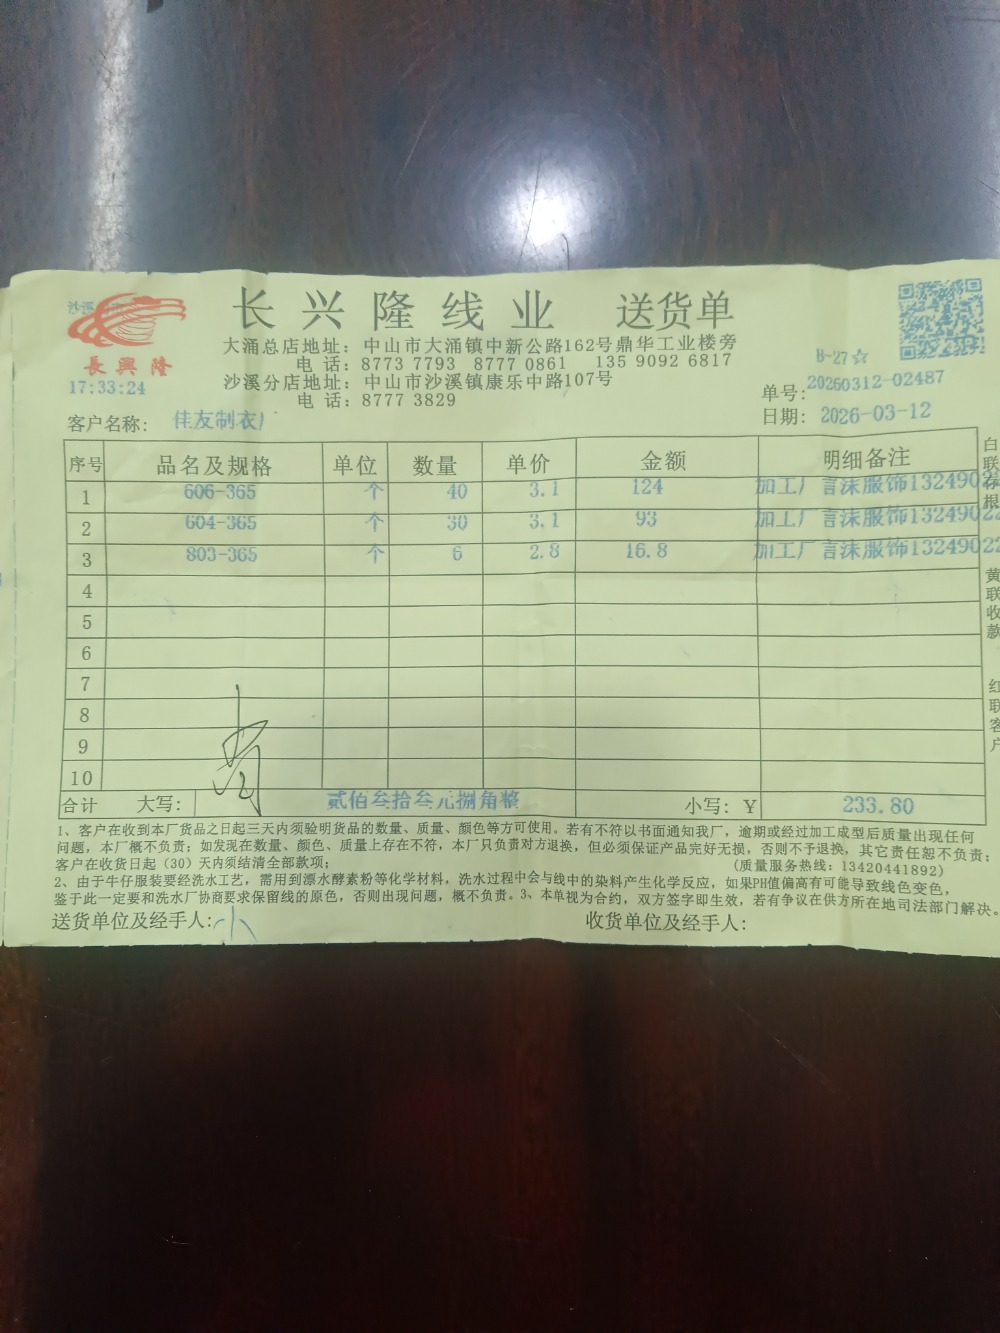 长兴隆线业 送货单
沙溪
長興隆
17:33:24
大涌总店地址：中山市大涌镇中新公路162号鼎华工业楼旁
电 话：8773 7793 8777 0861 135 9092 6817
沙溪分店地址：中山市沙溪镇康乐中路107号
电 话：8777 3829
B-27☆
单号：20260312-02487
日期：2026-03-12
客户名称：佳友制衣厂
序号 品名及规格 单位 数量 单价 金额 明细备注
1 606-365 个 40 3.1 124 加工厂言沫服饰1324902
2 604-365 个 30 3.1 93 加工厂言沫服饰13249022
3 803-365 个 6 2.8 16.8 加工厂言沫服饰13249022
4
5
6
7
8
9
10
合计 大写：贰佰叁拾叁元捌角整 小写：Y 233.80
1、客户在收到本厂货品之日起三天内须验明货品的数量、质量、颜色等方可使用。若有不符以书面通知我厂，逾期或经过加工成型后质量出现任何
问题，本厂概不负责；如发现在数量、颜色、质量上存在不符，本厂只负责对方退换，但必须保证产品完好无损，否则不予退换，其它责任恕不负责；
客户在收货日起（30）天内须结清全部款项； (质量服务热线：13420441892)
2、由于牛仔服装要经洗水工艺，需用到漂水酵素粉等化学材料，洗水过程中会与线中的染料产生化学反应，如果PH值偏高有可能导致线色变色，
鉴于此一定要和洗水厂协商要求保留线的原色，否则出现问题，概不负责。3、本单视为合约，双方签字即生效，若有争议在供方所在地司法部门解决。
送货单位及经手人：小 收货单位及经手人：
白联存根
黄联收款
红联客户